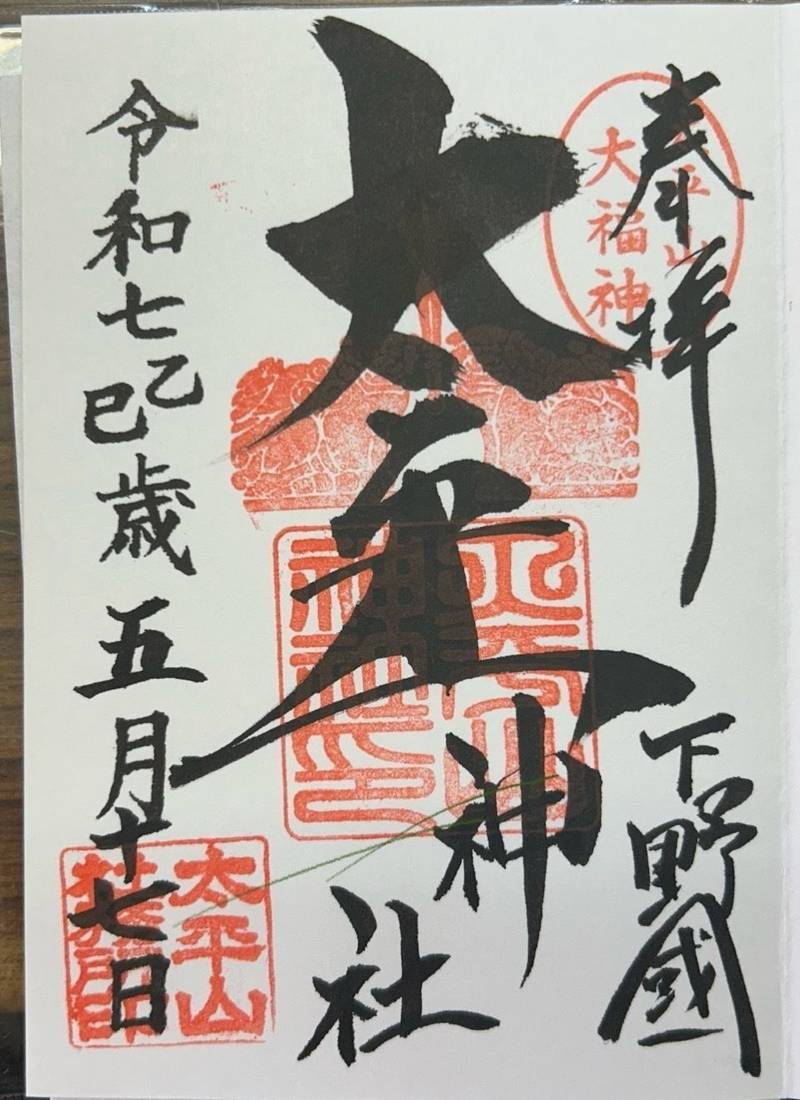 奉拝
下野國
太平山
大福神
太平山神社
太平山
神社印
令和七乙巳歳五月十七日
太平山
社務所印